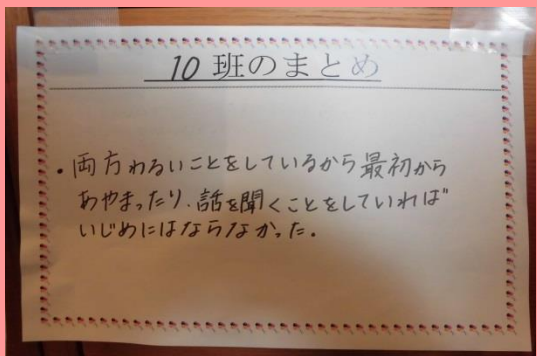 10 班のまとめ
・両方わるいことをしているから最初から
あやまったり、話を聞くことをしていれば
いじめにはならなかった。